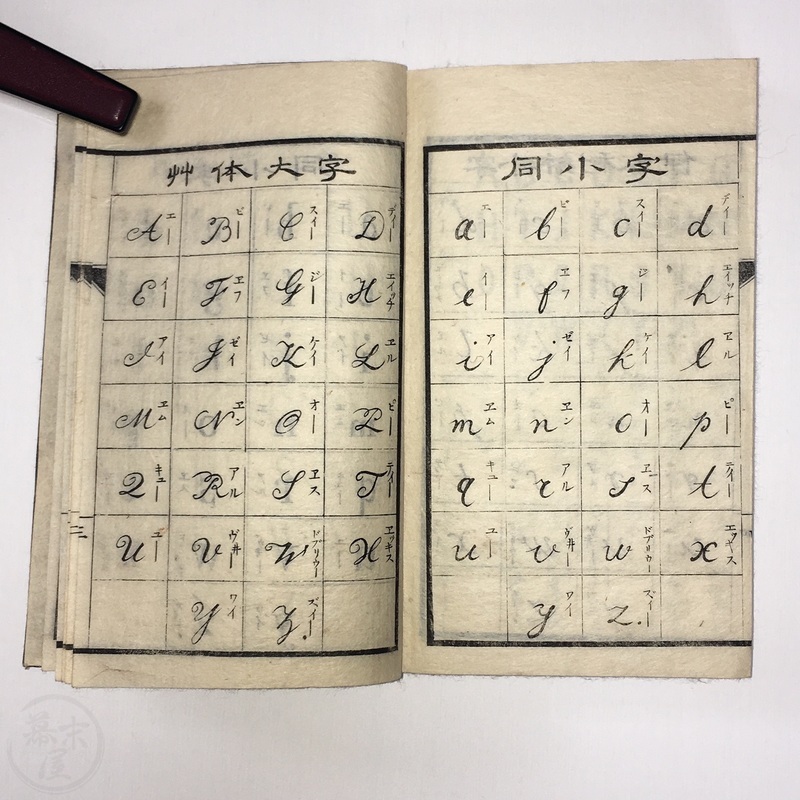 艸体大字
A エー B ビー C スイー D デイー
E イー F ヱフ G ジー H エイッチ
I アイ J ゼイ K ケイ L ヱル
M ヱム N ヱン O オー P ピー
Q キュー R アル S ヱス T テイー
U ユー V ヴ井ー W ドブリウー X エッキス
Y ワイ Z ズイー
三
同小字
a エー b ビー c スイー d デイー
e イー f ヱフ g ジー h エイッチ
i アイ j ゼイ k ケイ l ヱル
m ヱム n ヱン o オー p ピー
q キュー r アル s ヱス t テイー
u ユー v ヴ井ー w ドブリウー x エッキス
y ワイ z. ズイー
幕末屋